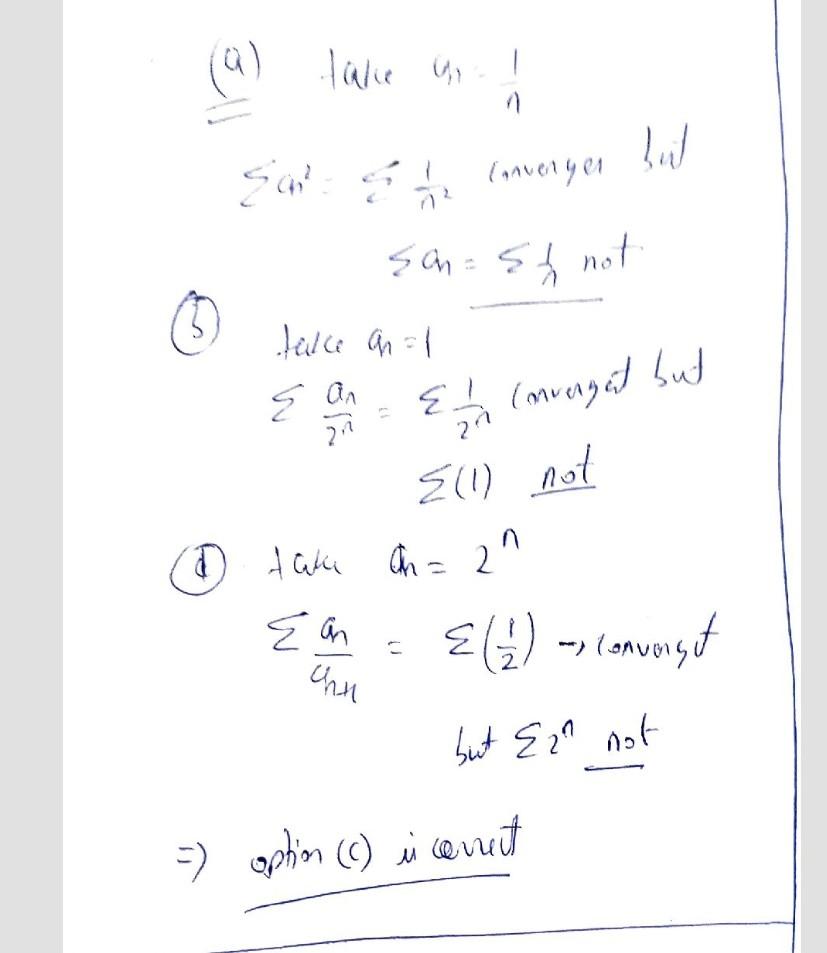 (a) take an = 1/n
Σan² = Σ 1/n² converges but
Σan = Σ 1/n not
(b) take an = 1
Σ an/2ⁿ = Σ 1/2ⁿ converget but
Σ(1) not
(d) take an = 2ⁿ
Σ an/an+1 = Σ(1/2) → converget
but Σ2ⁿ not
=) option (c) is correct